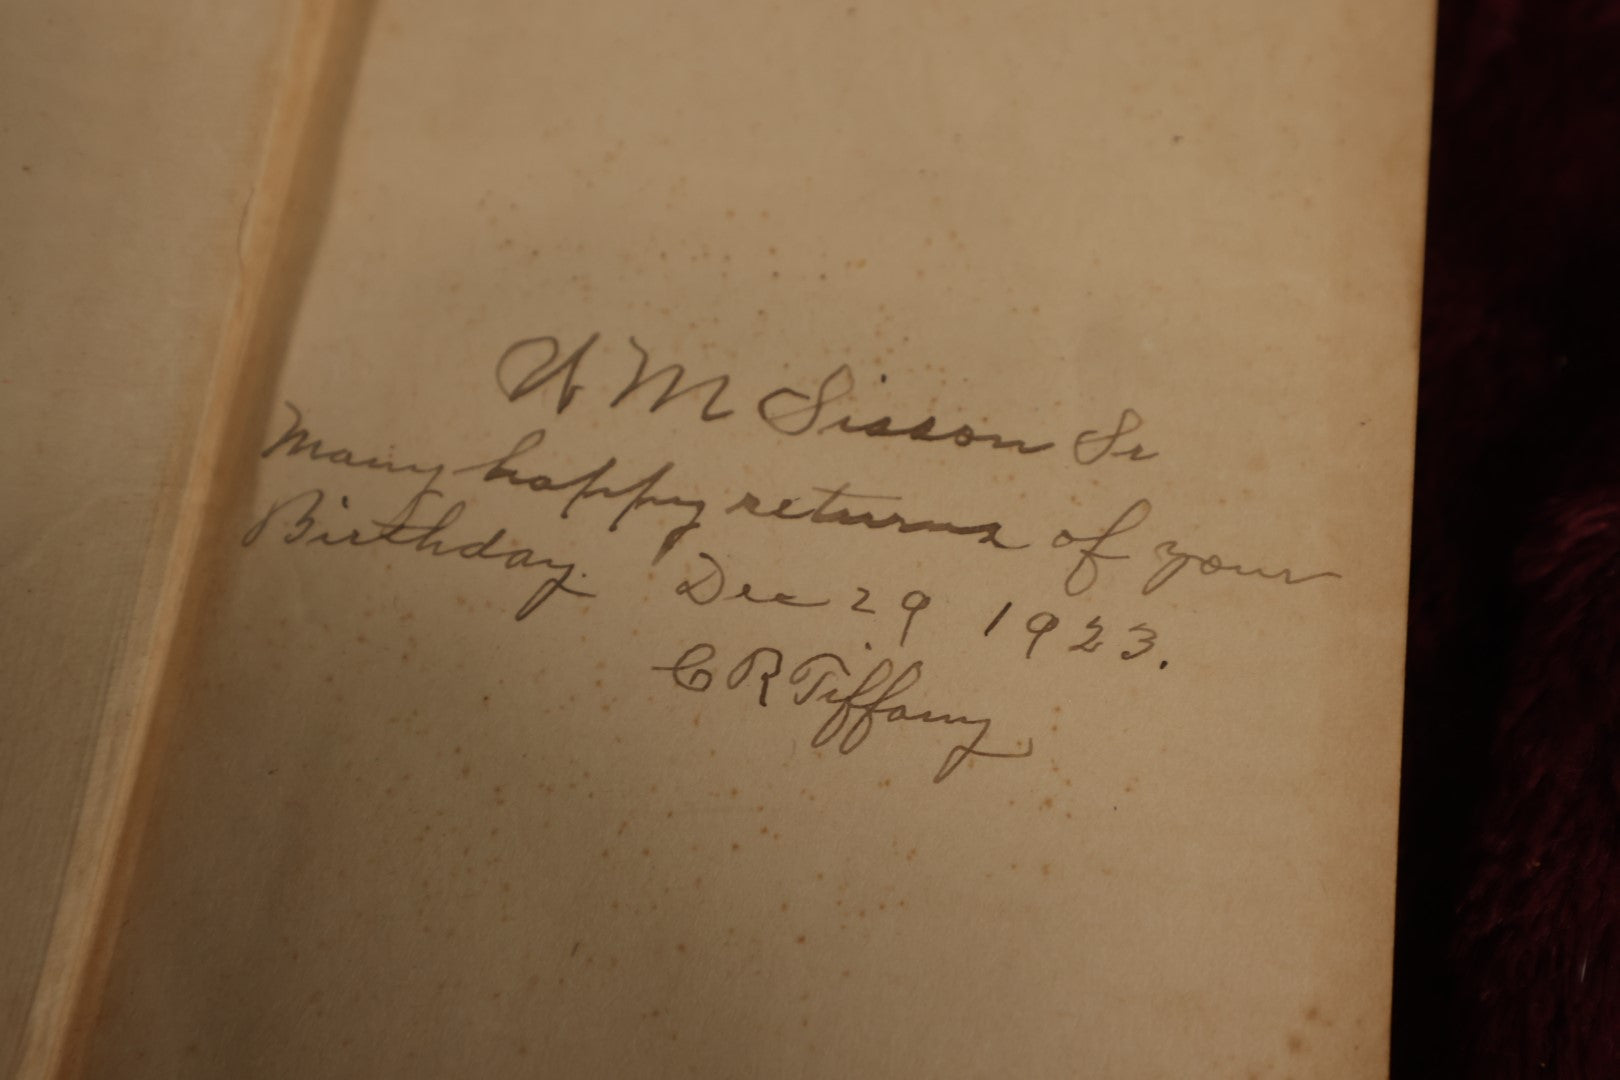 W M Sisson Sr
Many happy returns of your
Birthday. Dec 29 1923.
C R Tiffany